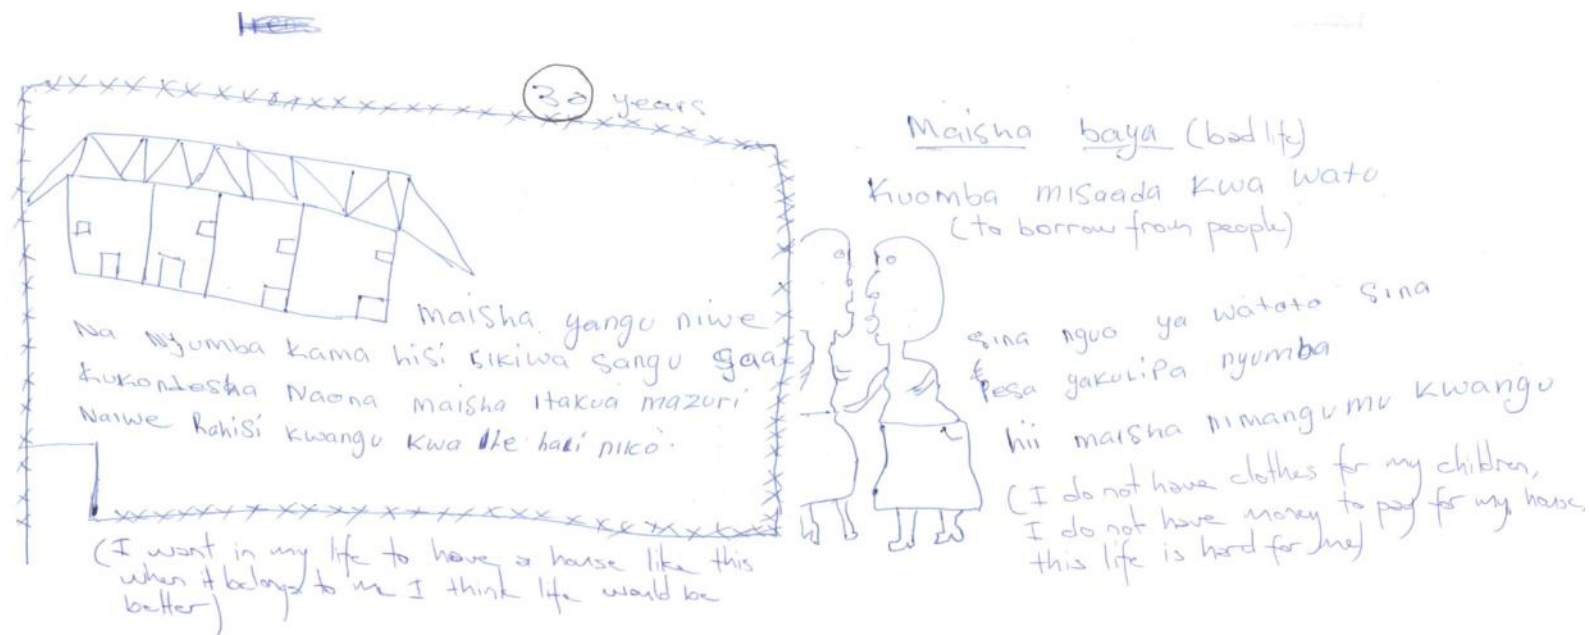 30 years
maisha yangu niwe
Na Nyumba kama hisi sikiwa sangu saa
kukondesha Naona maisha itakua mazuri
Naiwe Rahisi kwangu kwa hali niko.
(I want in my life to have a house like this
when it belongs to me I think life would be
better)
Maisha baya (bad life)
Kuomba misaada kwa watu
(to borrow from people)
sina nguo ya watoto sina
Pesa yakulipa nyumba
hii maisha nimangumu kwangu
(I do not have clothes for my children,
I do not have money to pay for my house,
this life is hard for me)